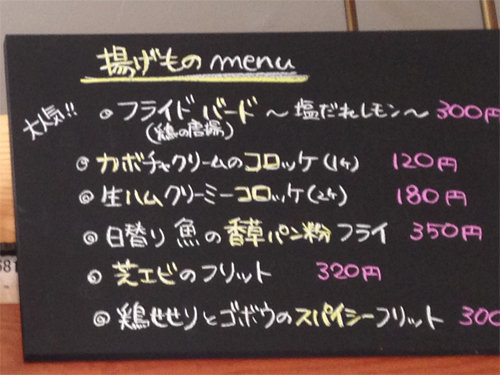 揚げもの menu
大人気!!
◎フライドバード ～塩だれレモン～ 300円
(鶏の唐揚)
◎カボチャクリームのコロッケ(1ヶ) 120円
◎生ハムクリーミーコロッケ(2ヶ) 180円
◎日替り魚の香草パン粉フライ 350円
◎芝エビのフリット 320円
◎鶏せせりとゴボウのスパイシーフリット 300
681